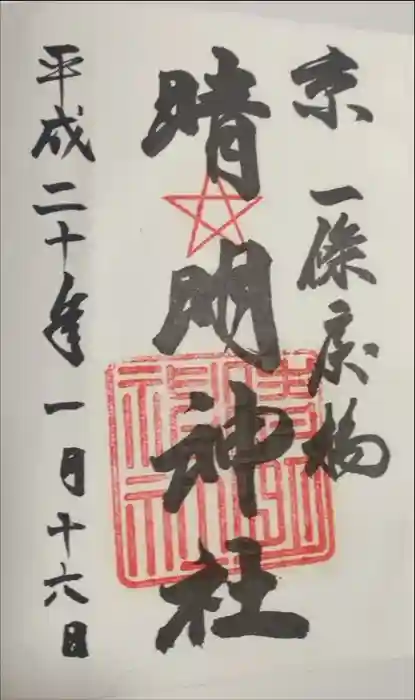 京 一條戻橋
晴明神社
平成二十年一月十六日